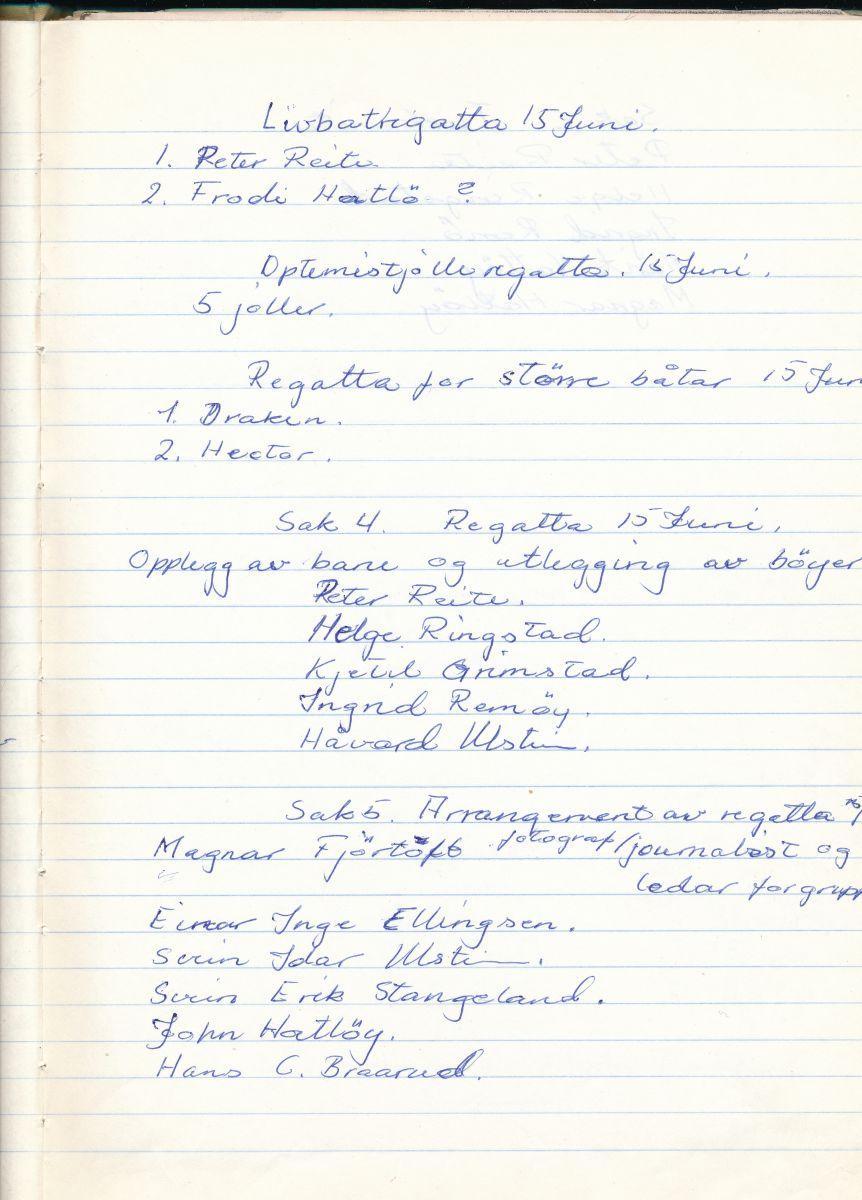 Livbåtregatta 15 Juni.
1. Peter Reite
2. Frodi Hatlö ?
Optemistjolleregatta. 15 Juni.
5 jöller.
Regatta for större båtar 15 Jun
1. Draken.
2. Hector.
Sak 4. Regatta 15 Juni.
Opplegg av bane og utlegging av böyer
Peter Reite.
Helge Ringstad.
Kjetil Grimstad.
Ingrid Remöy.
Håvard Ulstein.
Sak 5. Arrangement av regatta 15/
Magnar Fjörtoft fotograf/journalist og
ledar for grupp
Einar Inge Ellingsen.
Svein Idar Ulstein.
Svein Erik Stangeland.
John Hatlöy.
Hans C. Braarud.